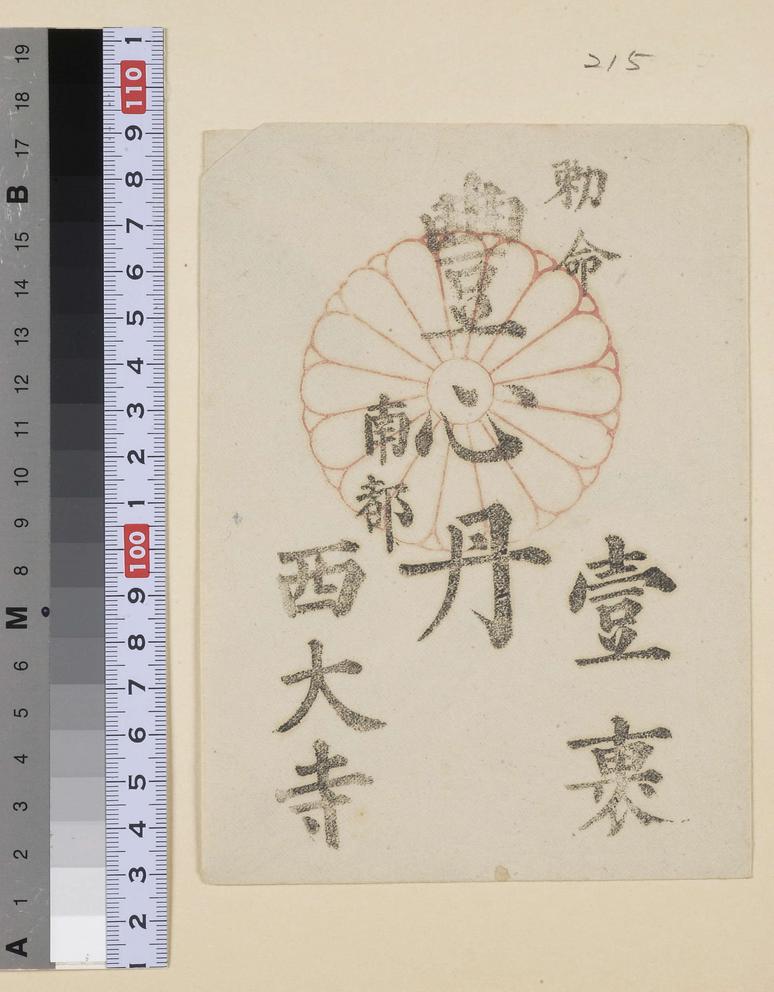 215
勅命
豐心丹
壹裹
南都
西大寺
1 110 9 8 7 6 5 4 3 2 1 100 9 8 7 6 5 4 3 2 1
19 18 17 B 15 14 13 12 11 10 9 8 M 6 5 4 3 2 1 A